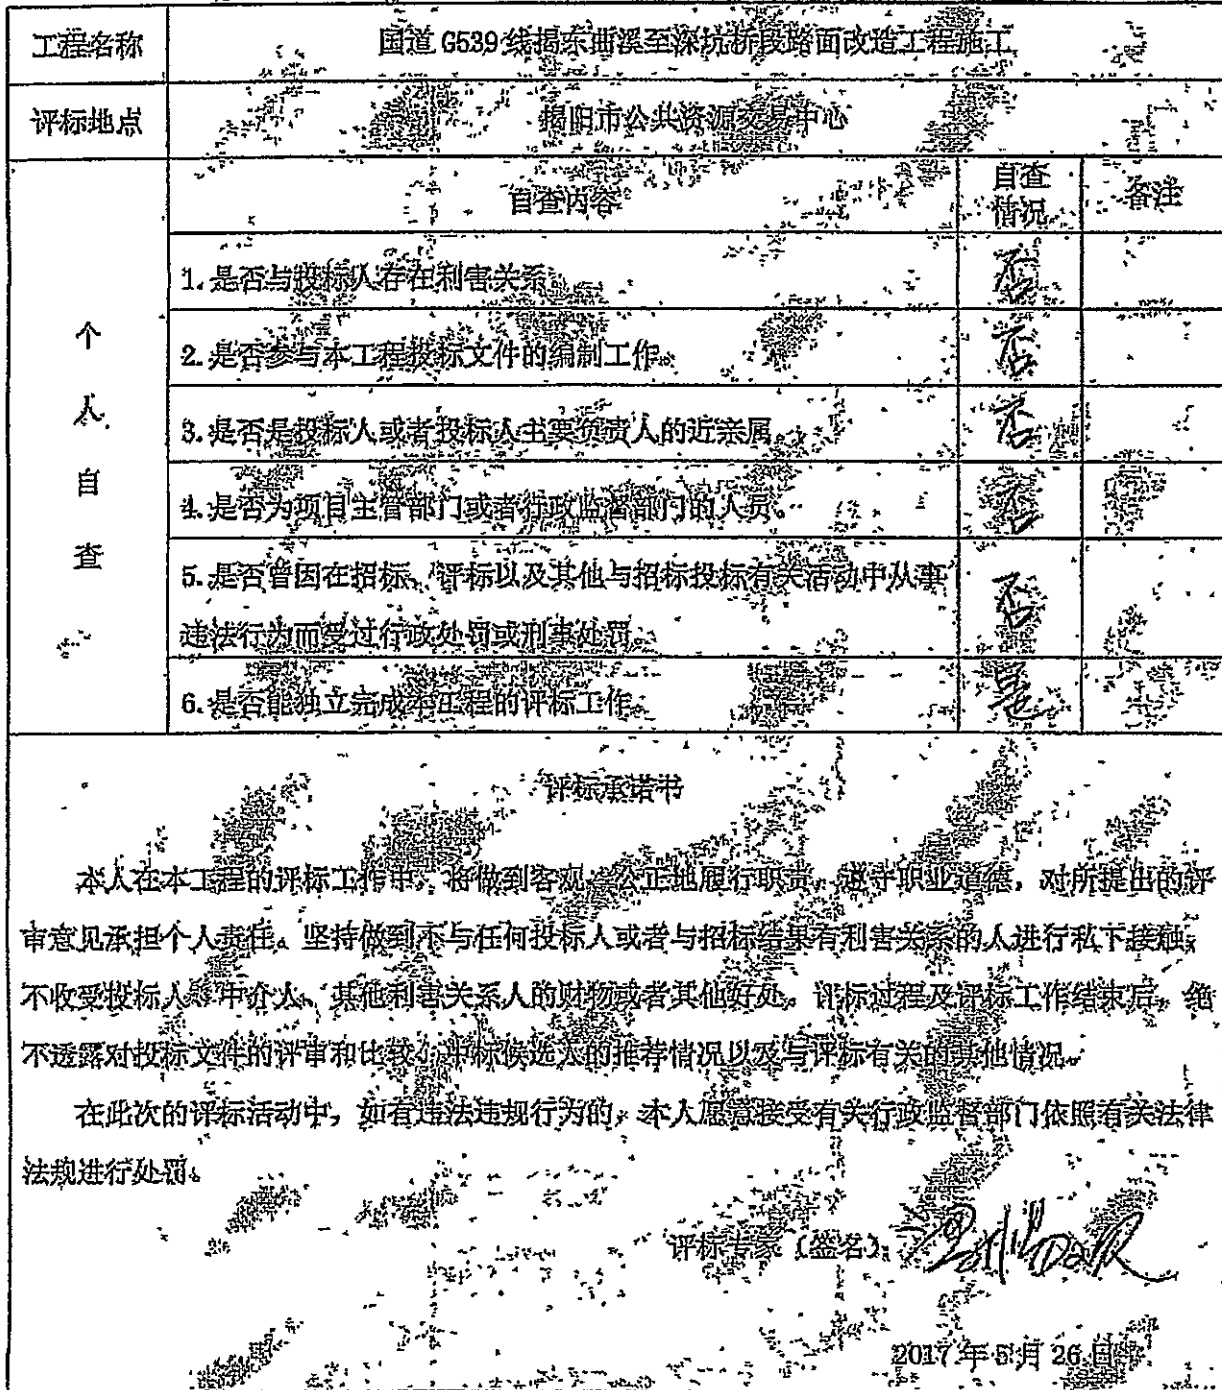 工程名称 国道 G539 线揭东曲溪至深坑桥段路面改造工程施工
评标地点 揭阳市公共资源交易中心
个人自查
自查内容 自查情况 备注
1.是否与投标人存在利害关系 否
2.是否参与本工程投标文件的编制工作。 否
3.是否是投标人或者投标人主要负责人的近亲属 否
4.是否为项目主管部门或者行政监督部门的人员。 否
5.是否曾因在招标、评标以及其他与招标投标有关活动中从事 否
违法行为而受过行政处罚或刑事处罚
6.是否能独立完成本工程的评标工作。 是
评标承诺书
本人在本工程的评标工作中,将做到客观、公正地履行职责,遵守职业道德,对所提出的评
审意见承担个人责任。坚持做到不与任何投标人或者与招标结果有利害关系的人进行私下接触,
不收受投标人、中介人、其他利害关系人的财物或者其他好处。评标过程及评标工作结束后,绝
不透露对投标文件的评审和比较、中标候选人的推荐情况以及与评标有关的其他情况。
在此次的评标活动中,如有违法违规行为的,本人愿意接受有关行政监督部门依照有关法律
法规进行处罚。
评标专家(签名):
2017 年 5 月 26 日